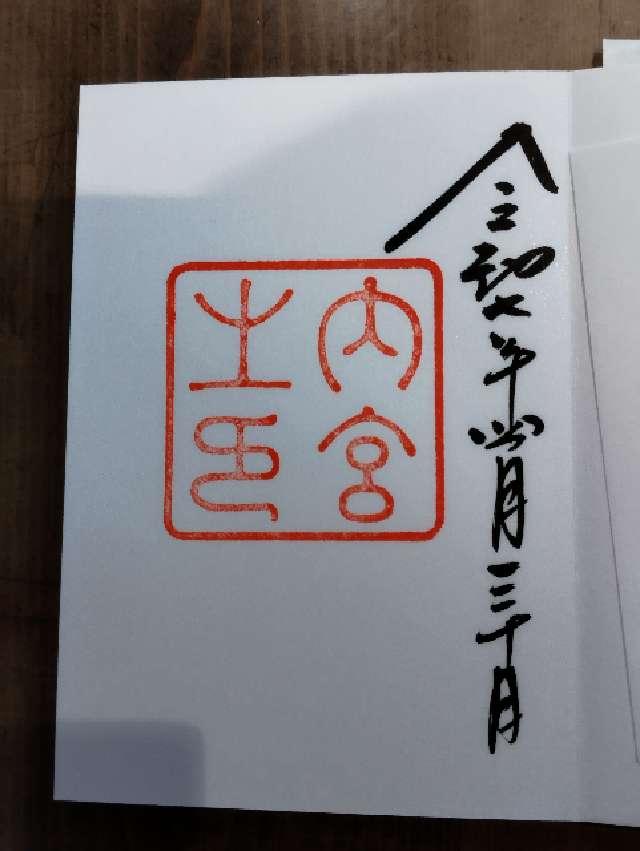 令和七年四月三十日
内宮
之印